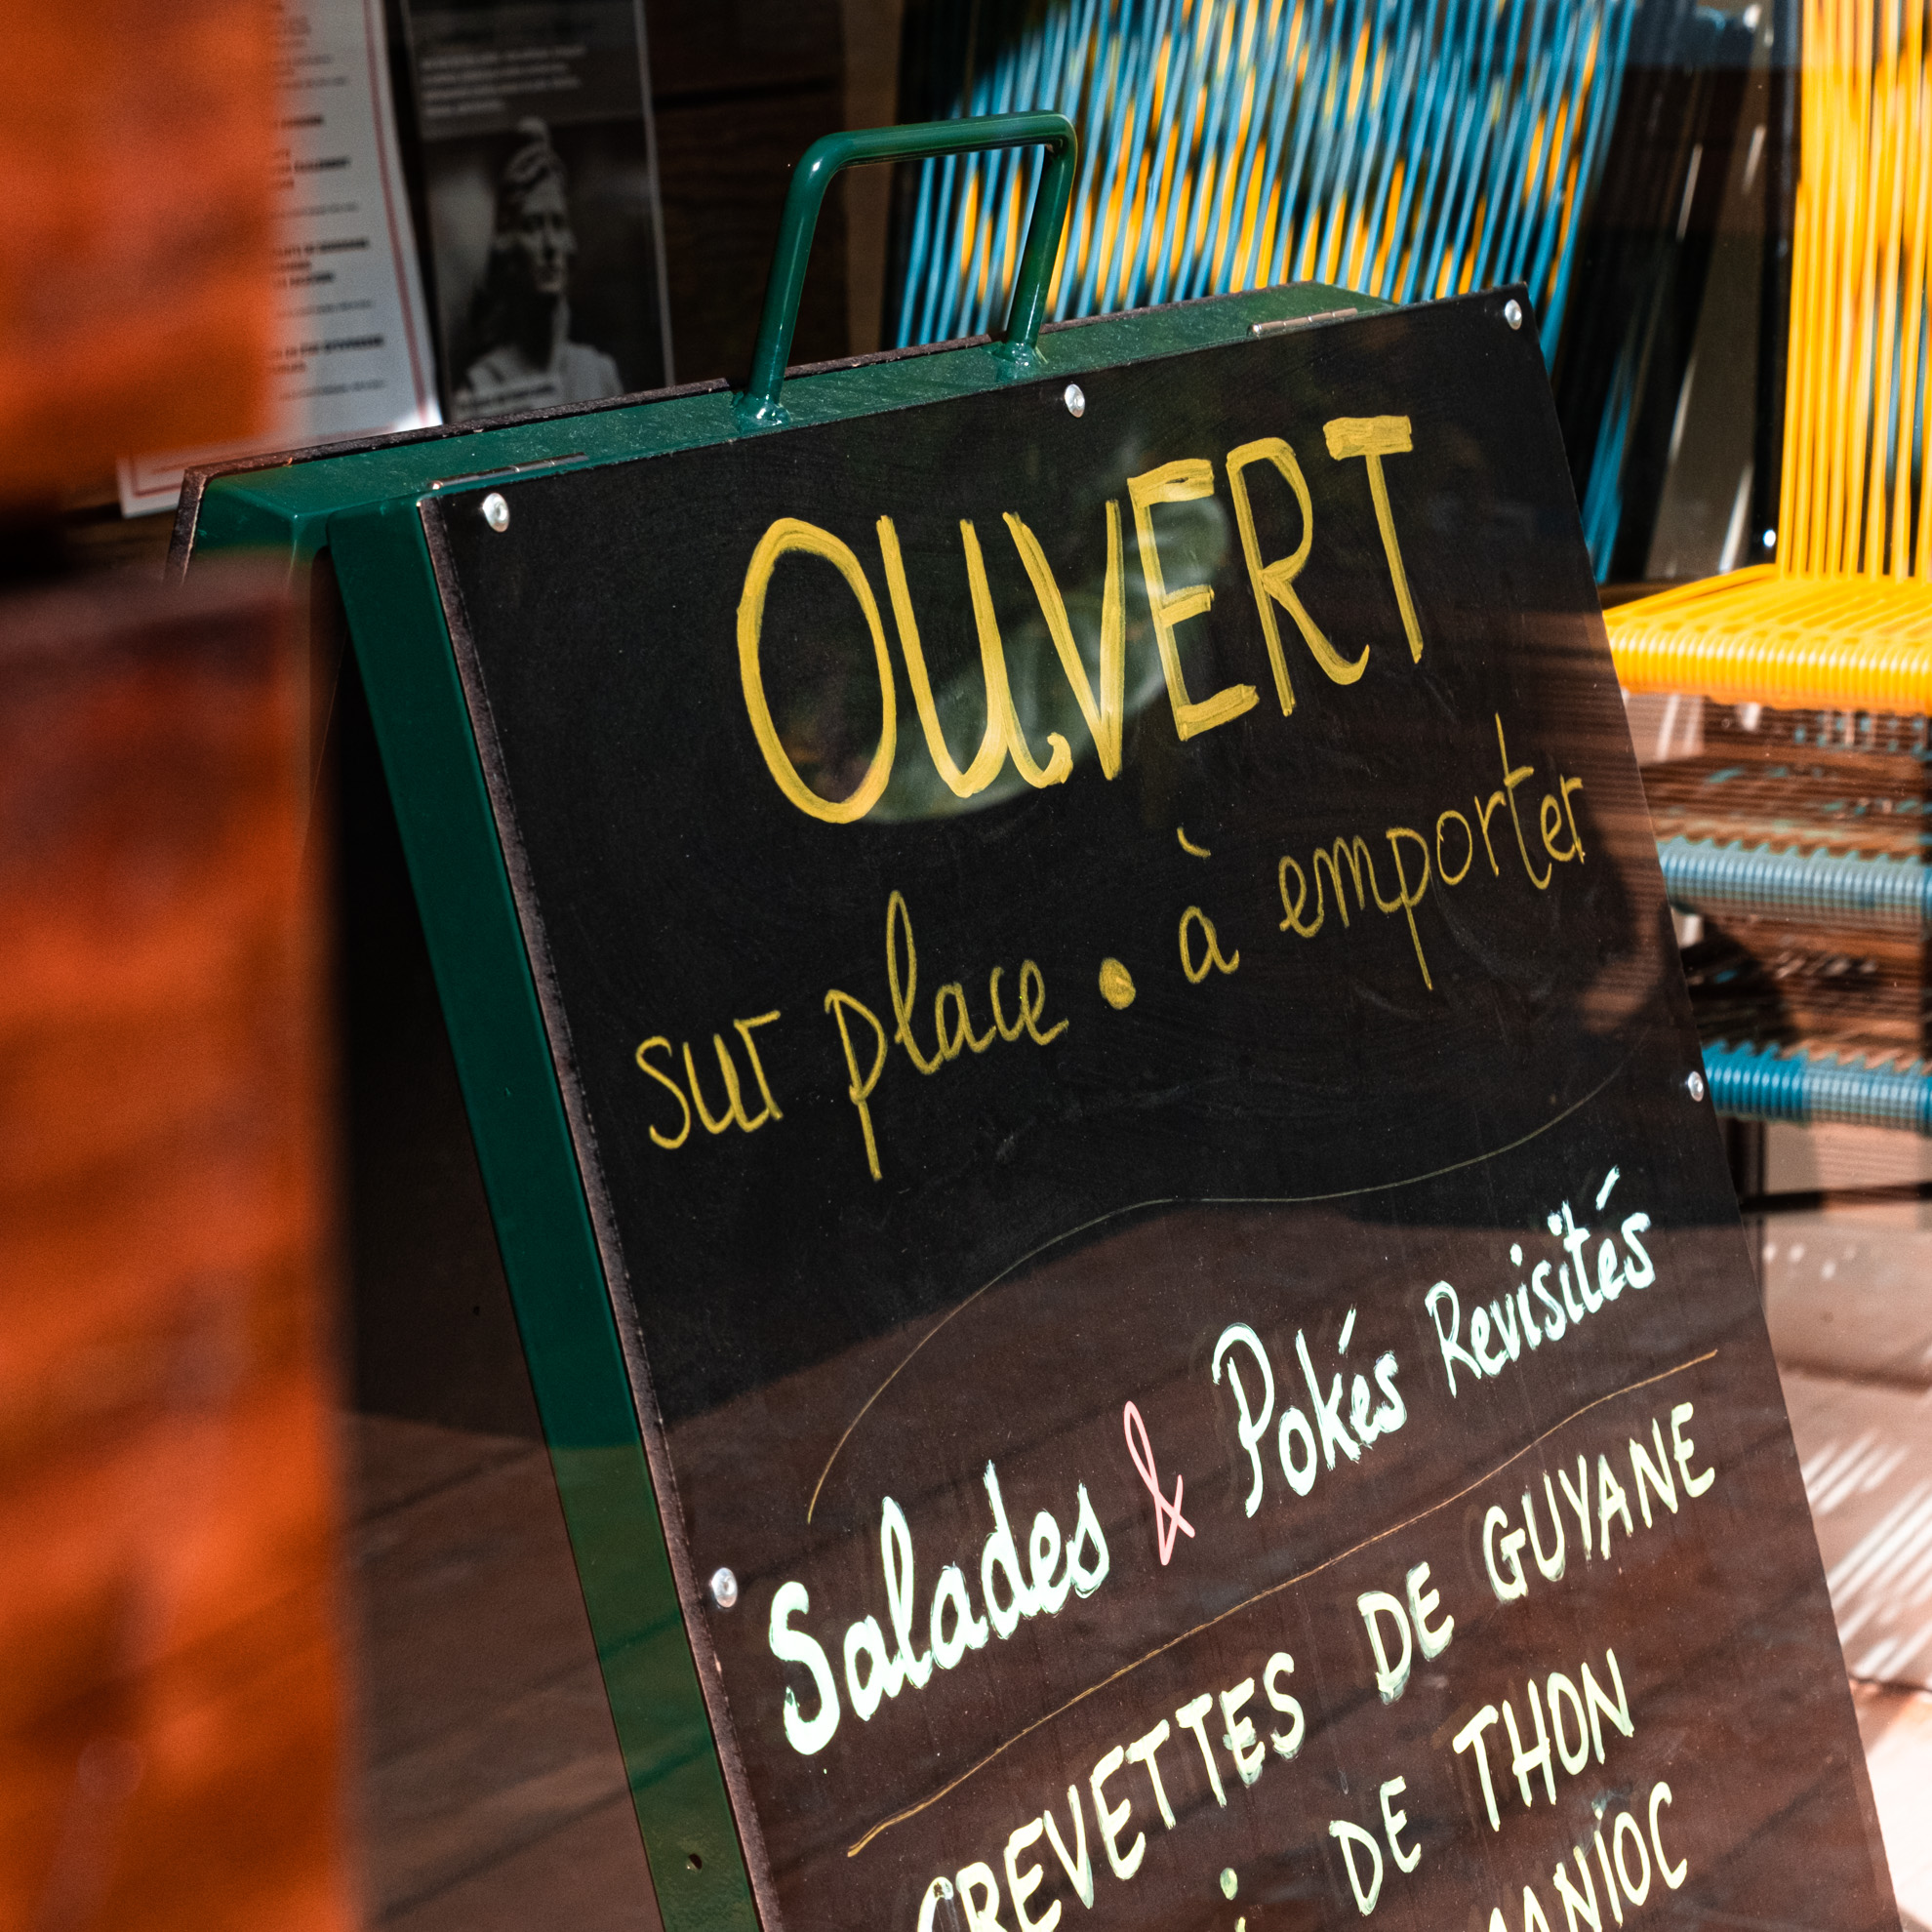 OUVERT
sur place • à emporter
Salades & Pokés Revisités
CREVETTES DE GUYANE
DE THON
MANIOC